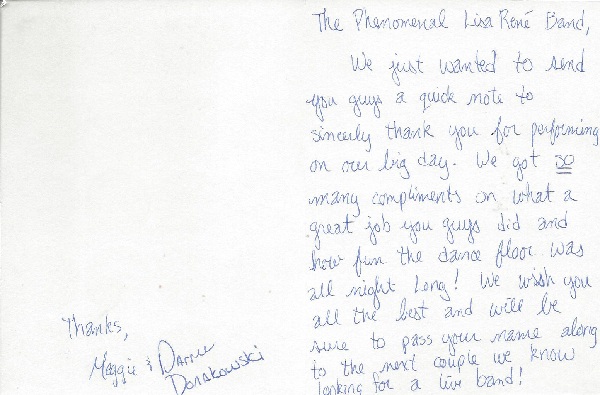 The Phenomenal Lisa René Band,
We just wanted to send
you guys a quick note to
sincerly thank you for performing
on our big day. We got so
many compliments on what a
great job you guys did and
how fun the dance floor was
all night long! We wish you
all the best and will be
sure to pass your name along
to the next couple we know
looking for a live band!
Thanks,
Maggie &